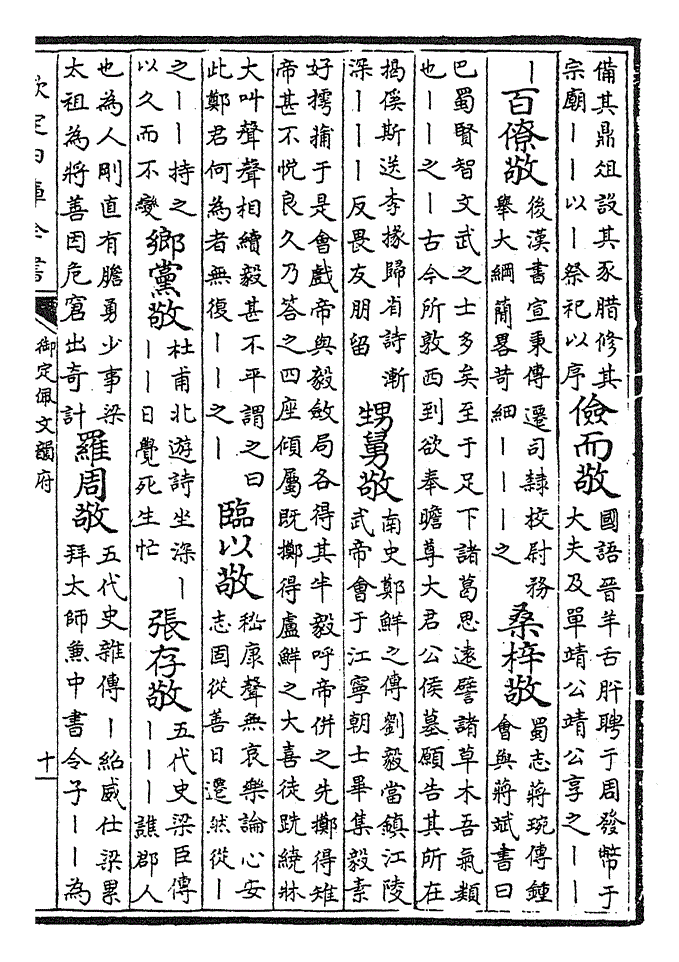 備其鼎俎設其豕腊修其
宗廟丨丨以丨祭祀以序
儉而敬
國語晉羊舌肸聘于周發幣于
大夫及單靖公靖公享之丨丨
丨
百僚敬
後漢書宣秉傳遷司隸校尉務
舉大綱簡畧苛細丨丨丨之
桑梓敬
蜀志蔣琬傳鍾
會與蔣斌書曰
巴蜀賢智文武之士多矣至于足下諸葛思遠譬諸草木吾氣類
也丨丨之丨古今所敦西到欲奉瞻尊大君公侯墓願告其所在
揭傒斯送李掾歸省詩漸
深丨丨丨反畏友朋留
甥舅敬
南史鄭鮮之傳劉毅當鎮江陵
武帝會于江寧朝士畢集毅素
好摴蒱于是會戲帝與毅斂局各得其半毅呼帝併之先擲得雉
帝甚不悅良久乃答之四座傾屬既擲得盧鮮之大喜徒跣繞牀
大叫聲聲相續毅甚不平謂之曰
此鄭君何為者無復丨丨之丨
臨以敬
嵇康聲無哀樂論心安
志固從善日遷然從丨
之丨丨持之
以久而不變
鄉黨敬
杜甫北遊詩坐深丨
丨丨日覺死生忙
張存敬
五代史梁臣傳
丨丨丨譙郡人
也為人剛直有膽勇少事梁
太祖為將善因危窘出奇計
羅周敬
五代史雜傳丨紹威仕梁累
拜太師兼中書令子丨丨為
欽定四庫全書
御定佩文韻府
十